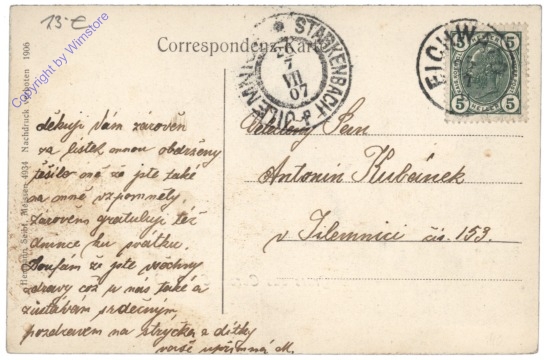 13-€
Copyright by Wimstore
Correspondenz-Karte
STARKENBACH
JILEMNICE
7
VII
07
EICHW
5 5
5 5
Hermann Seibt, Meissen 1934 Nachdruck verboten 1906
děkuji Vám zároveň
za lístek mnou obdržený
těšilo mě že jste také
na mně vzpomněly,
zároveň gratuluji též
ku svátku.
Doufám že jste všechny
zdravy což u nás také a
zůstávám srdečným
pozdravem na strýčka a dítky
vaše upřímná M.
Pan
Antonín Kubánek
v Jilemnici čís. 153.